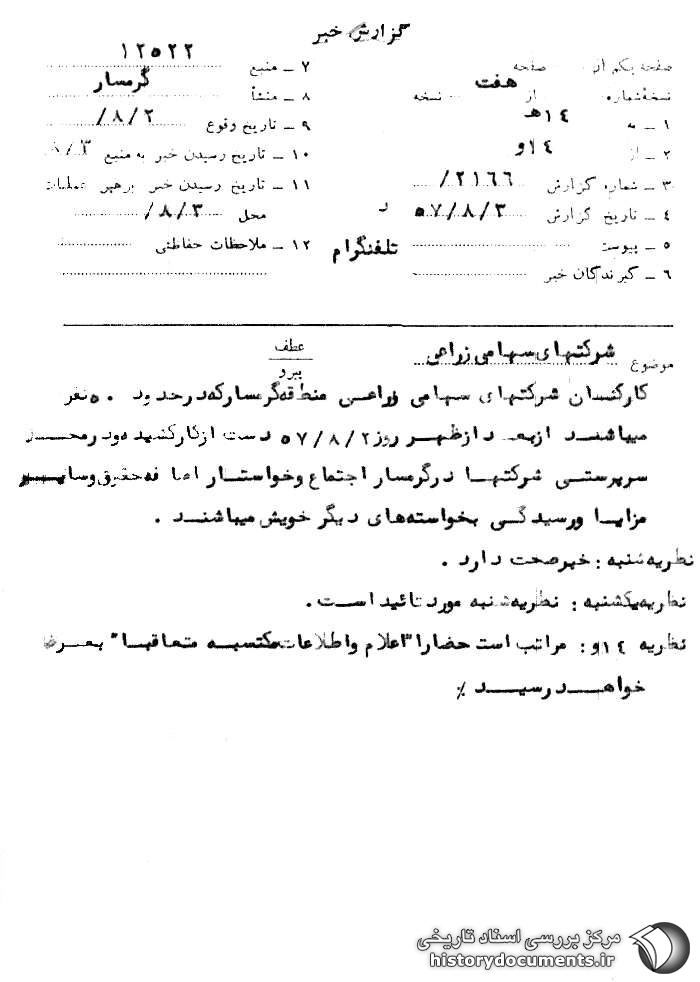 گزارش خبر
صفحه یکم از صفحه
نسخه شماره از هفت نسخه
۱ – به ۱۴هـ
۲ – از ۱۴و
۳ – شماره گزارش ۲۱۶۶/
۴ – تاریخ گزارش ۵۷/۸/۳
۵ – پیوست
۶ – گیرندگان خبر
۷ – منبع ۱۲۵۲۲
۸ – منشأ گرمسار
۹ – تاریخ وقوع ۸/۲/
۱۰ – تاریخ رسیدن خبر به منبع ۸/۳
۱۱ – تاریخ رسیدن خبر برهبر عملیات
محل ۸/۳/
۱۲ – ملاحظات حفاظتی
تلفنگرام
موضوع شرکتهای سهامی زراعی
عطف
پیرو
کارکنسان شرکتهای سهامی زراعی منطقه گرمسار که در حدود ۵۰ نفر
میباشند از بعد از ظهر روز ۵۷/۸/۲ دست از کار کشیده و در محل
سرپرستی شرکتها در گرمسار اجتماع و خواستار اضافه حقوق و سایر
مزایا و رسیدگی بخواسته‌های دیگر خویش میباشند .
نظریه شنبه : خبر صحت دارد .
نظریه یکشنبه : نظریه شنبه مورد تائید است .
نظریه ۱۴و : مراتب است حضارا" اعلام و اطلاعات مکتسبه متعاقبا" بعرض
خواهد رسید ٪
مرکز بررسی اسناد تاریخی
historydocuments.ir